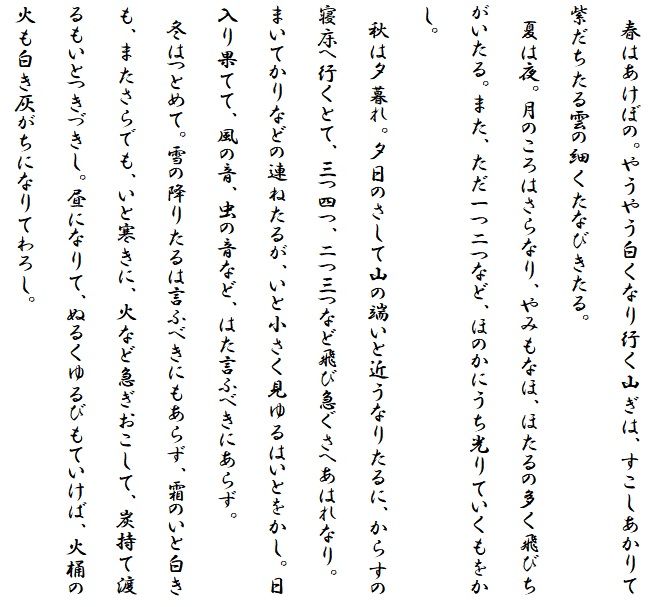 春はあけぼの。やうやう白くなり行く山ぎは、すこしあかりて
紫だちたる雲の細くたなびきたる。
夏は夜。月のころはさらなり、やみもなほ、ほたるの多く飛びち
がいたる。また、ただ一つ二つなど、ほのかにうち光りていくもをか
し。
秋は夕暮れ。夕日のさして山の端いと近うなりたるに、からすの
寝床へ行くとて、三つ四つ、二つ三つなど飛び急ぐさへあはれなり。
まいてかりなどの連ねたるが、いと小さく見ゆるはいとをかし。日
入り果てて、風の音、虫の音など、はた言ふべきにあらず。
冬はつとめて。雪の降りたるは言ふべきにもあらず、霜のいと白き
も、またさらでも、いと寒きに、火など急ぎおこして、炭持て渡
るもいとつきづきし。昼になりて、ぬるくゆるびもていけば、火桶の
火も白き灰がちになりてわろし。